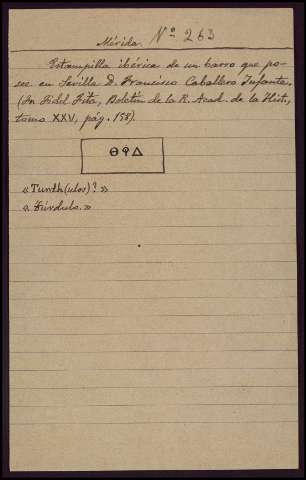 Mérida. Nº 263
Estampilla ibérica de un barro que po-
see en Sevilla D. Francisco Caballero Infante.
(In Fidel Fita, Boletín de la R. Acad. de la Hist.,
tomo XXV, pág. 158).
ΘΦΔ
«Turdulo.»